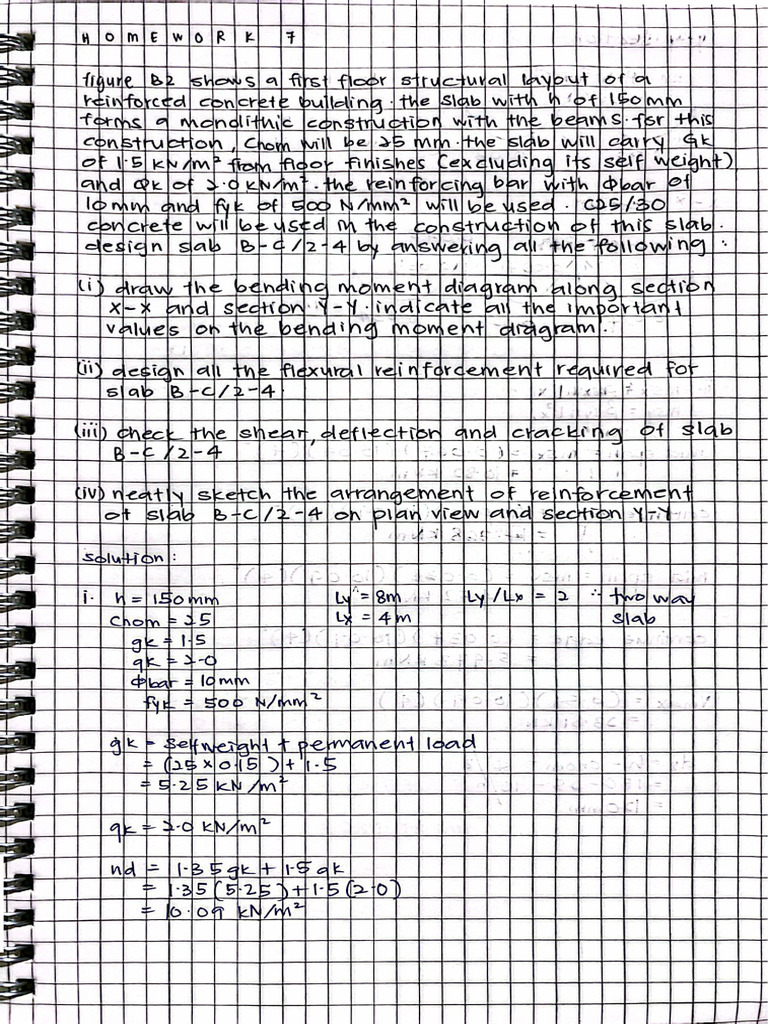 HOMEWORK 7
figure B2 shows a first floor structural layout of a
reinforced concrete building. the slab with h of 150mm
forms a monolithic construction with the beams. for this
construction, Cnom will be 25 mm. the slab will carry Gk
of 1.5 kN/m² from floor finishes (excluding its self weight)
and Qk of 2.0 kN/m². the reinforcing bar with Φbar of
10mm and fyk of 500 N/mm² will be used. C25/30
concrete will be used in the construction of this slab.
design slab B-C/2-4 by answering all the following :
(i) draw the bending moment diagram along section
X-X and section Y-Y. indicate all the important
values on the bending moment diagram.
(ii) design all the flexural reinforcement required for
slab B-C/2-4.
(iii) check the shear, deflection and cracking of slab
B-C/2-4
(iv) neatly sketch the arrangement of reinforcement
of slab B-C/2-4 on plan view and section Y-Y
solution :
i. h = 150mm Ly = 8m Ly/Lx = 2 ∴ two way
Cnom = 25 Lx = 4m slab
gk = 1.5
qk = 2.0
Φbar = 10mm
fyk = 500 N/mm²
gk = selfweight + permanent load
= (25 x 0.15) + 1.5
= 5.25 kN/m²
qk = 2.0 kN/m²
nd = 1.35gk + 1.5qk
= 1.35(5.25) + 1.5(2.0)
= 10.09 kN/m²